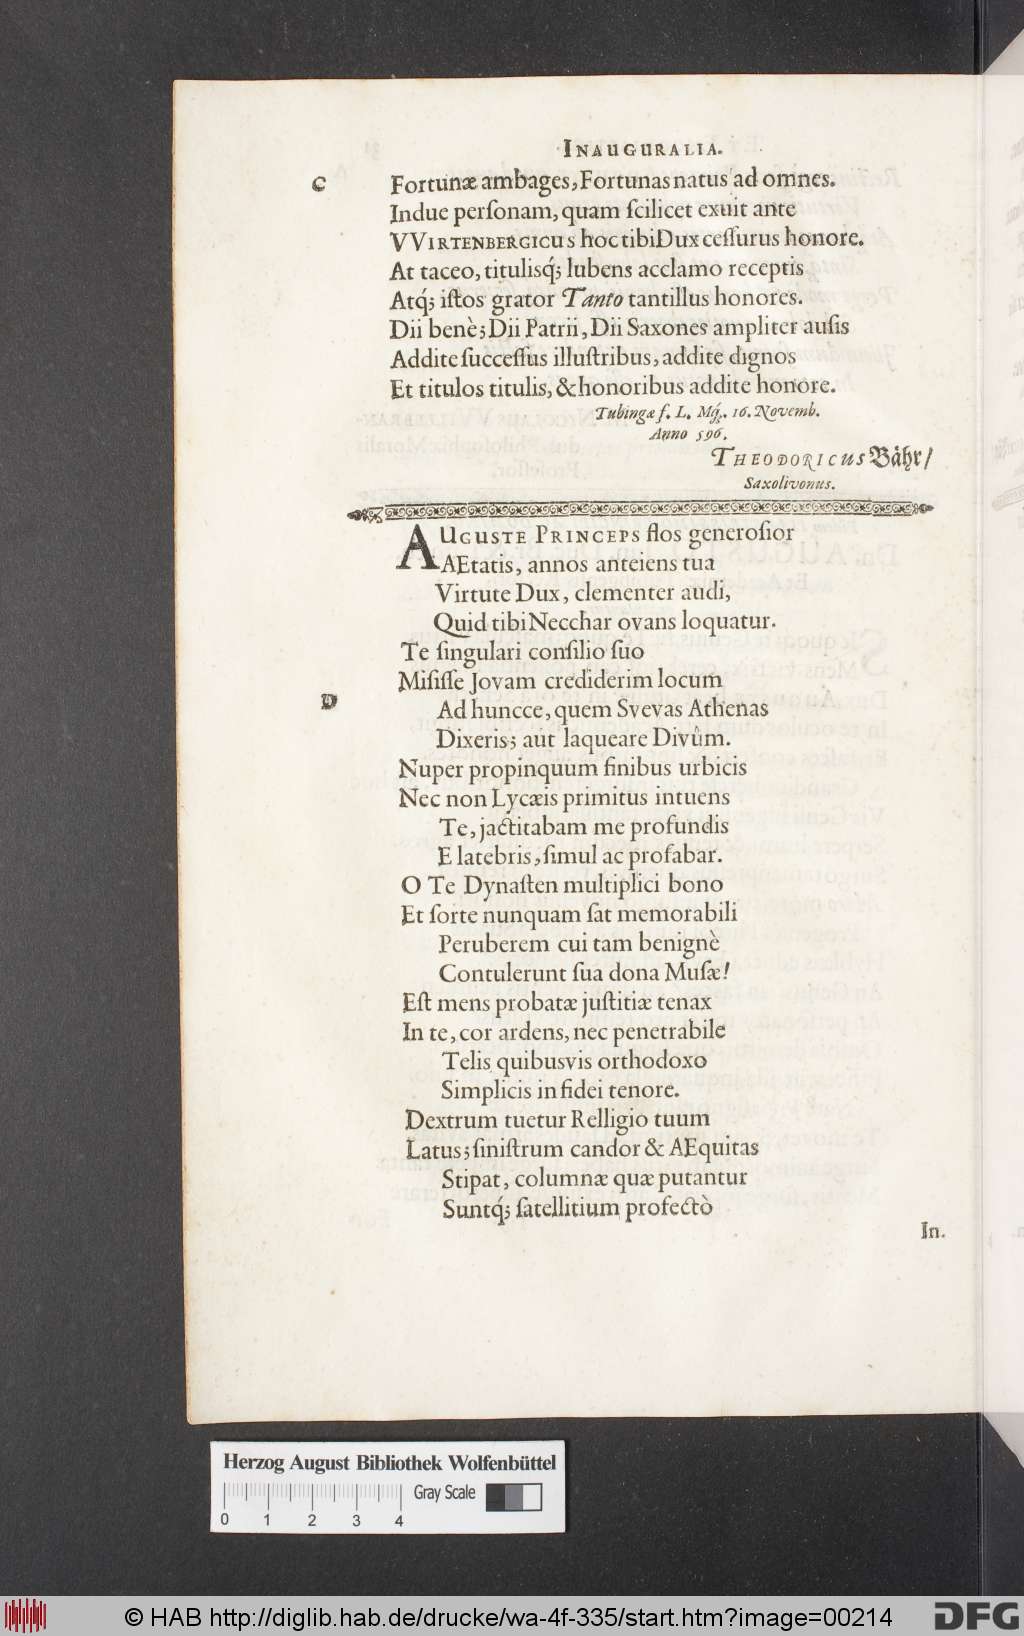 INAUGURALIA.
C
Fortunæ ambages, Fortunas natus ad omnes.
Indue perſonam, quam ſcilicet exuit ante
VVIRTENBERGICUS hoc tibi Dux ceſſurus honore.
At taceo, titulisq́; lubens acclamo receptis
Atq́; iſtos grator Tanto tantillus honores.
Dii benè; Dii Patrii, Dii Saxones ampliter auſis
Addite ſucceſſus illuſtribus, addite dignos
Et titulos titulis, & honoribus addite honore.
Tubingæ f. L. Mq́. 16. Novemb.
Anno 596.
THEODORICUS Bähr/
Saxolivonus.
AUGUSTE PRINCEPS flos generoſior
AEtatis, annos anteiens tua
Virtute Dux, clementer audi,
Quid tibi Necchar ovans loquatur.
Te ſingulari conſilio ſuo
Miſiſſe Jovam crediderim locum
D
Ad huncce, quem Svevas Athenas
Dixeris; aut laqueare Divûm.
Nuper propinquum finibus urbicis
Nec non Lycæis primitus intuens
Te, jactitabam me profundis
E latebris, ſimul ac profabar.
O Te Dynaſten multiplici bono
Et ſorte nunquam ſat memorabili
Peruberem cui tam benignè
Contulerunt ſua dona Muſæ!
Eſt mens probatæ juſtitiæ tenax
In te, cor ardens, nec penetrabile
Telis quibusvis orthodoxo
Simplicis in fidei tenore.
Dextrum tuetur Relligio tuum
Latus; ſiniſtrum candor & AEquitas
Stipat, columnæ quæ putantur
Suntq́; ſatellitium profectò
In.
Herzog August Bibliothek Wolfenbüttel
Gray Scale
0 1 2 3 4
© HAB http://diglib.hab.de/drucke/wa-4f-335/start.htm?image=00214
DFG